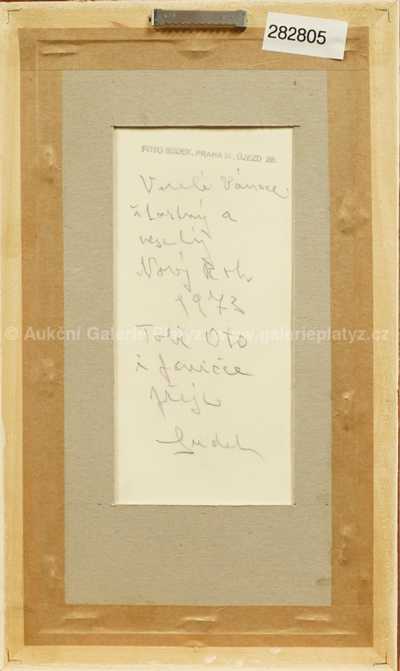 282805
FOTO SUDEK, PRAHA III, ÚJEZD 28.
Veselé Vánoce
šťastný a
veselý
Nový Rok
1973
© Aukční Galerie Platýz - www.galerieplatyz.cz
Tobě Oto
i Janičce
přeje
Sudek